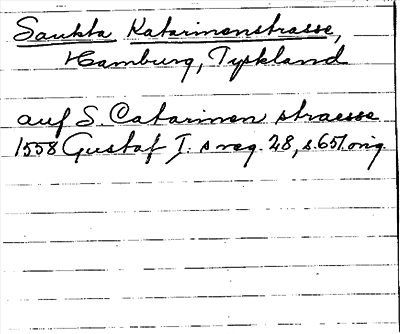 Sankta Katarinenstrasse,
Hamburg, Tyskland
auf S. Catarinen straesse
1558 Gustaf I. s reg. 28, s. 657. orig